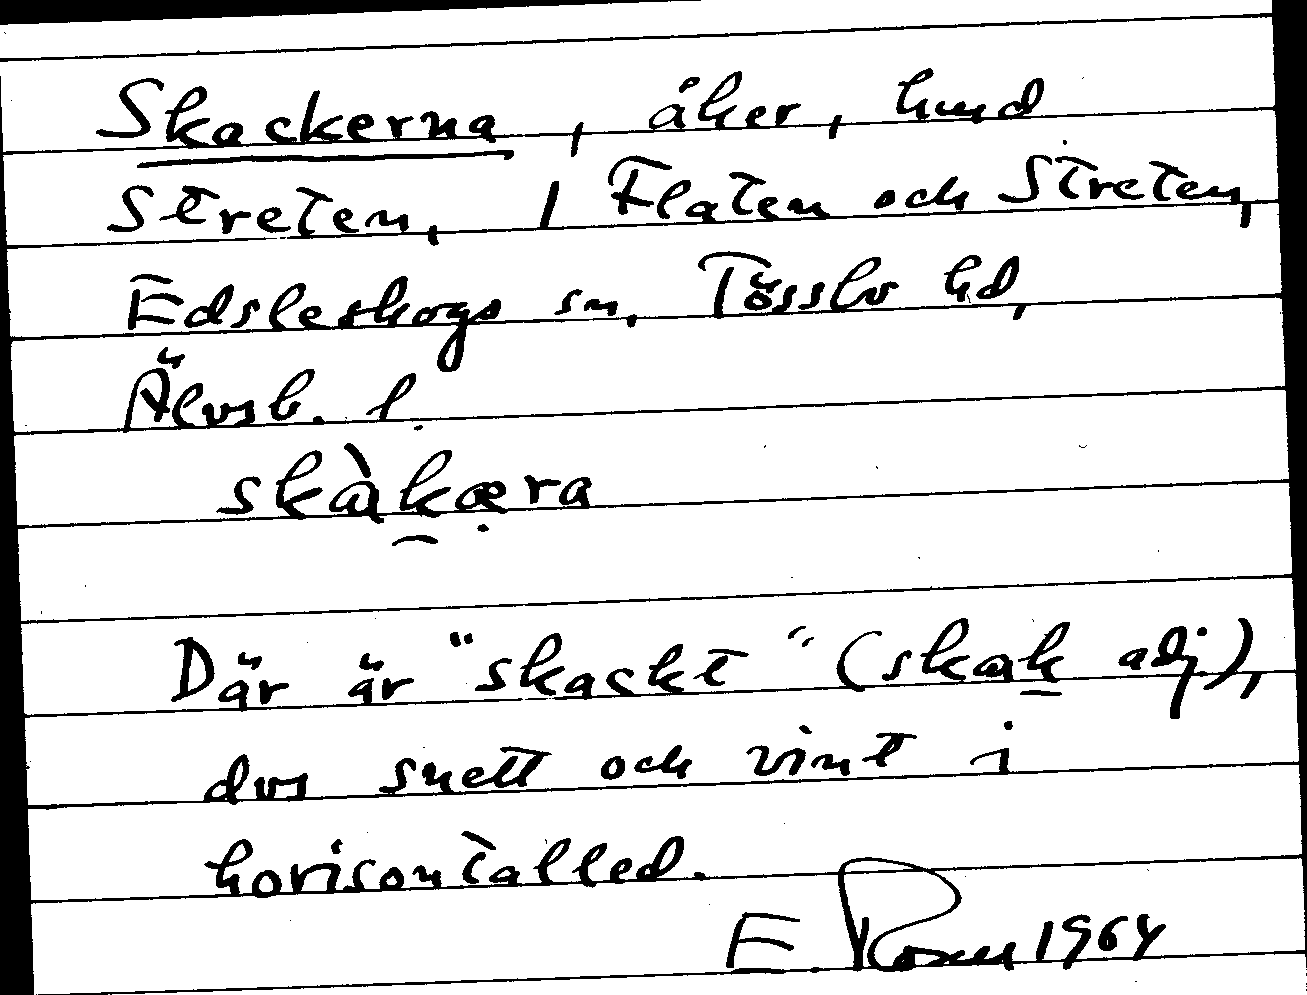 Skackerna, åker, hmd
Streten, 1 Flaten och Streten,
Edsleskogs sn, Tössbo hd,
Älvsb. l.
skàkæ̣ra
Där är "skackt" (skak adj),
dvs snett och vint i
horisontalled.
E. Rosen 1964